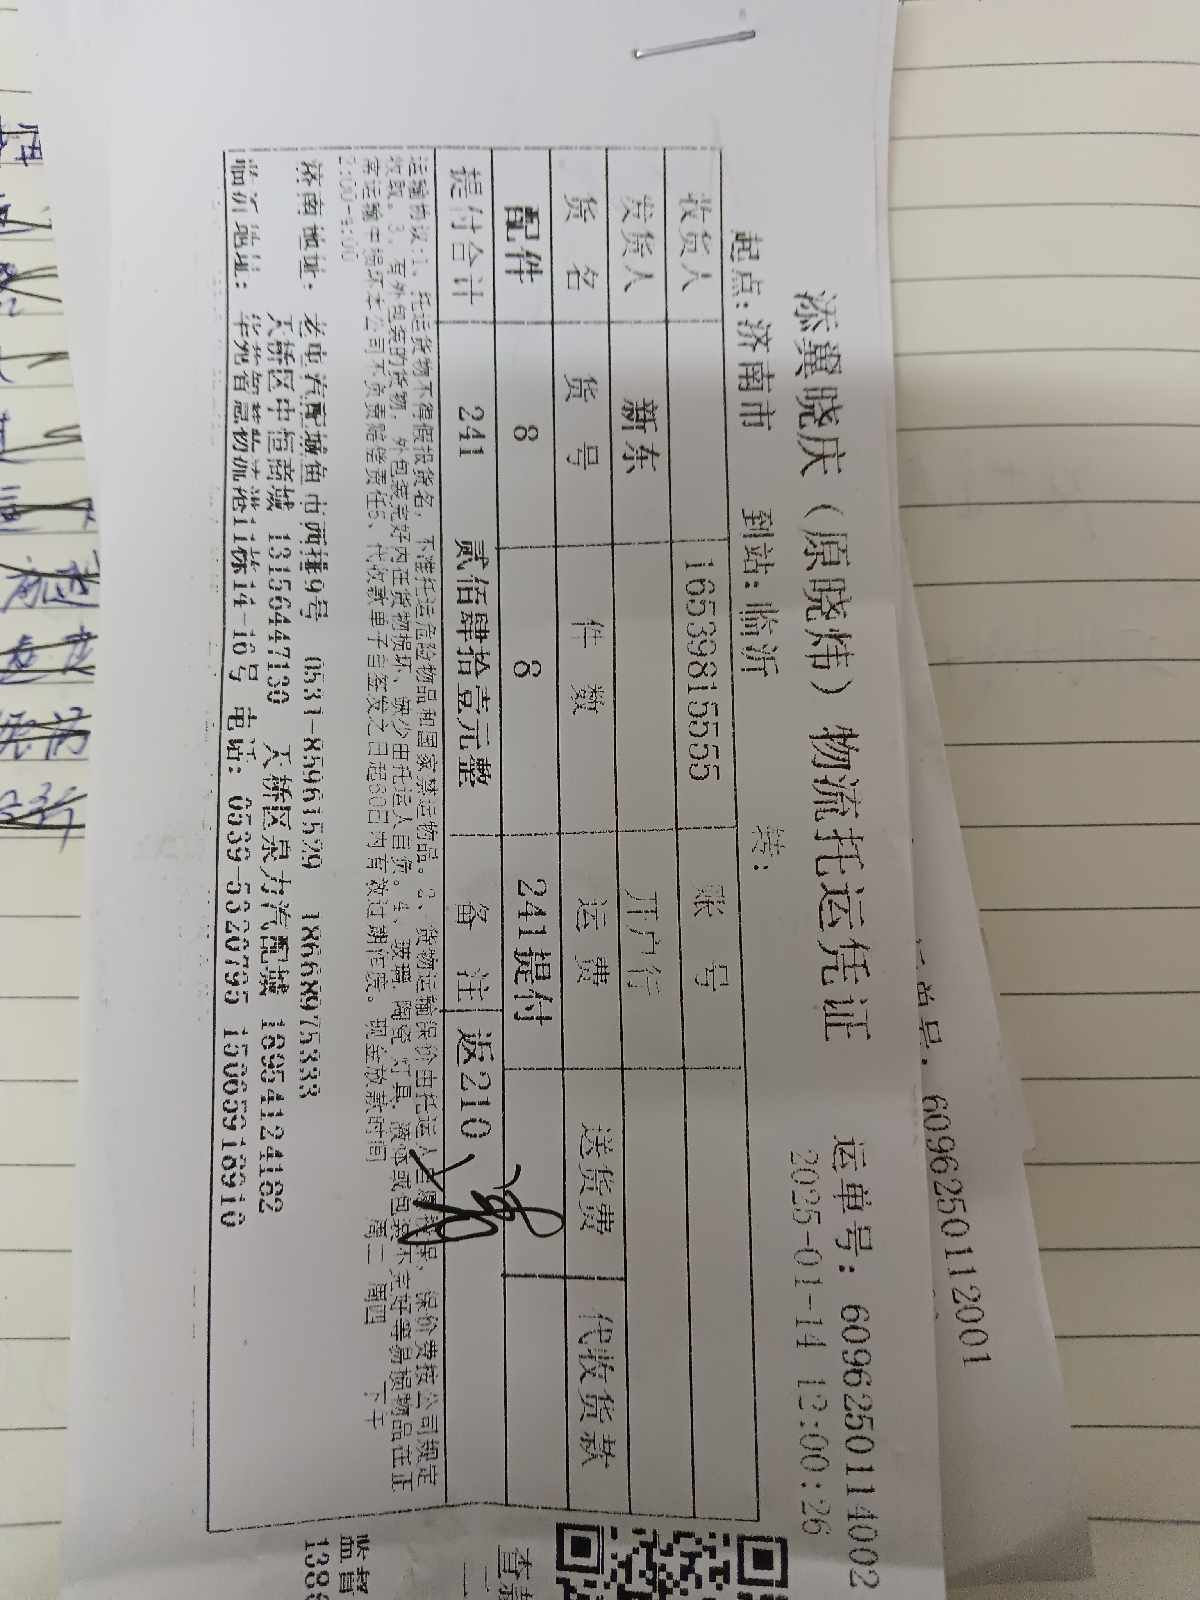 添翼晓庆（原晓炜）物流托运凭证
运单号：6096250114002
2025-01-14 13:00:26
起点：济南市 到站：临沂 转：
收货人 16539815555 账 号
发货人 新东 开户行
货 名 货 号 件 数 运 费 送货费 代收货款
配件 8 8 241提付
提付合计 241 贰佰肆拾壹元整 备 注 返210
运输协议：1、托运货物不得假报货名，不准托运危险物品和国家禁运物品。2、货物运输保价由托运人自愿投保，保价费按公司规定
收取。3、有外包装的货物，外包装完好内在货物损坏、缺少由托运人自负。4、玻璃、陶瓷、灯具、液体或包装不完好等易损物品在正
常运输中损坏本公司不负责赔偿责任5、代收款单子自签发之日起60日内有效过期作废。现金放款时间 周二 周四 下午
济南地址： 老屯汽配城鱼市西排9号 0531-85961529 18668975333
天桥区中恒商城 13156447130 天桥区泉力汽配城 18954124182
临沂地址：
11栋14-16号 电话：0539-5320795 15065918910
监督
1388
单号：6096250112001